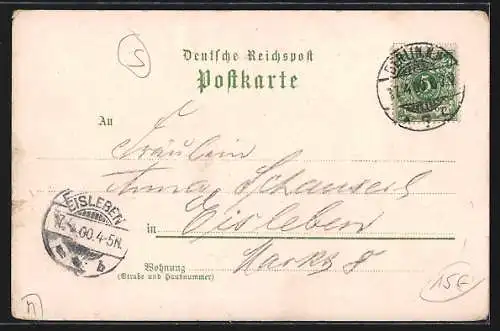 Deutsche Reichspost
Postkarte
An
Fräulein
Anna Schauseil
in Eisleben
Markt 8
Wohnung
(Straße und Hausnummer)
BERLIN
5
EISLEBEN
00.4-5N.
b
15€